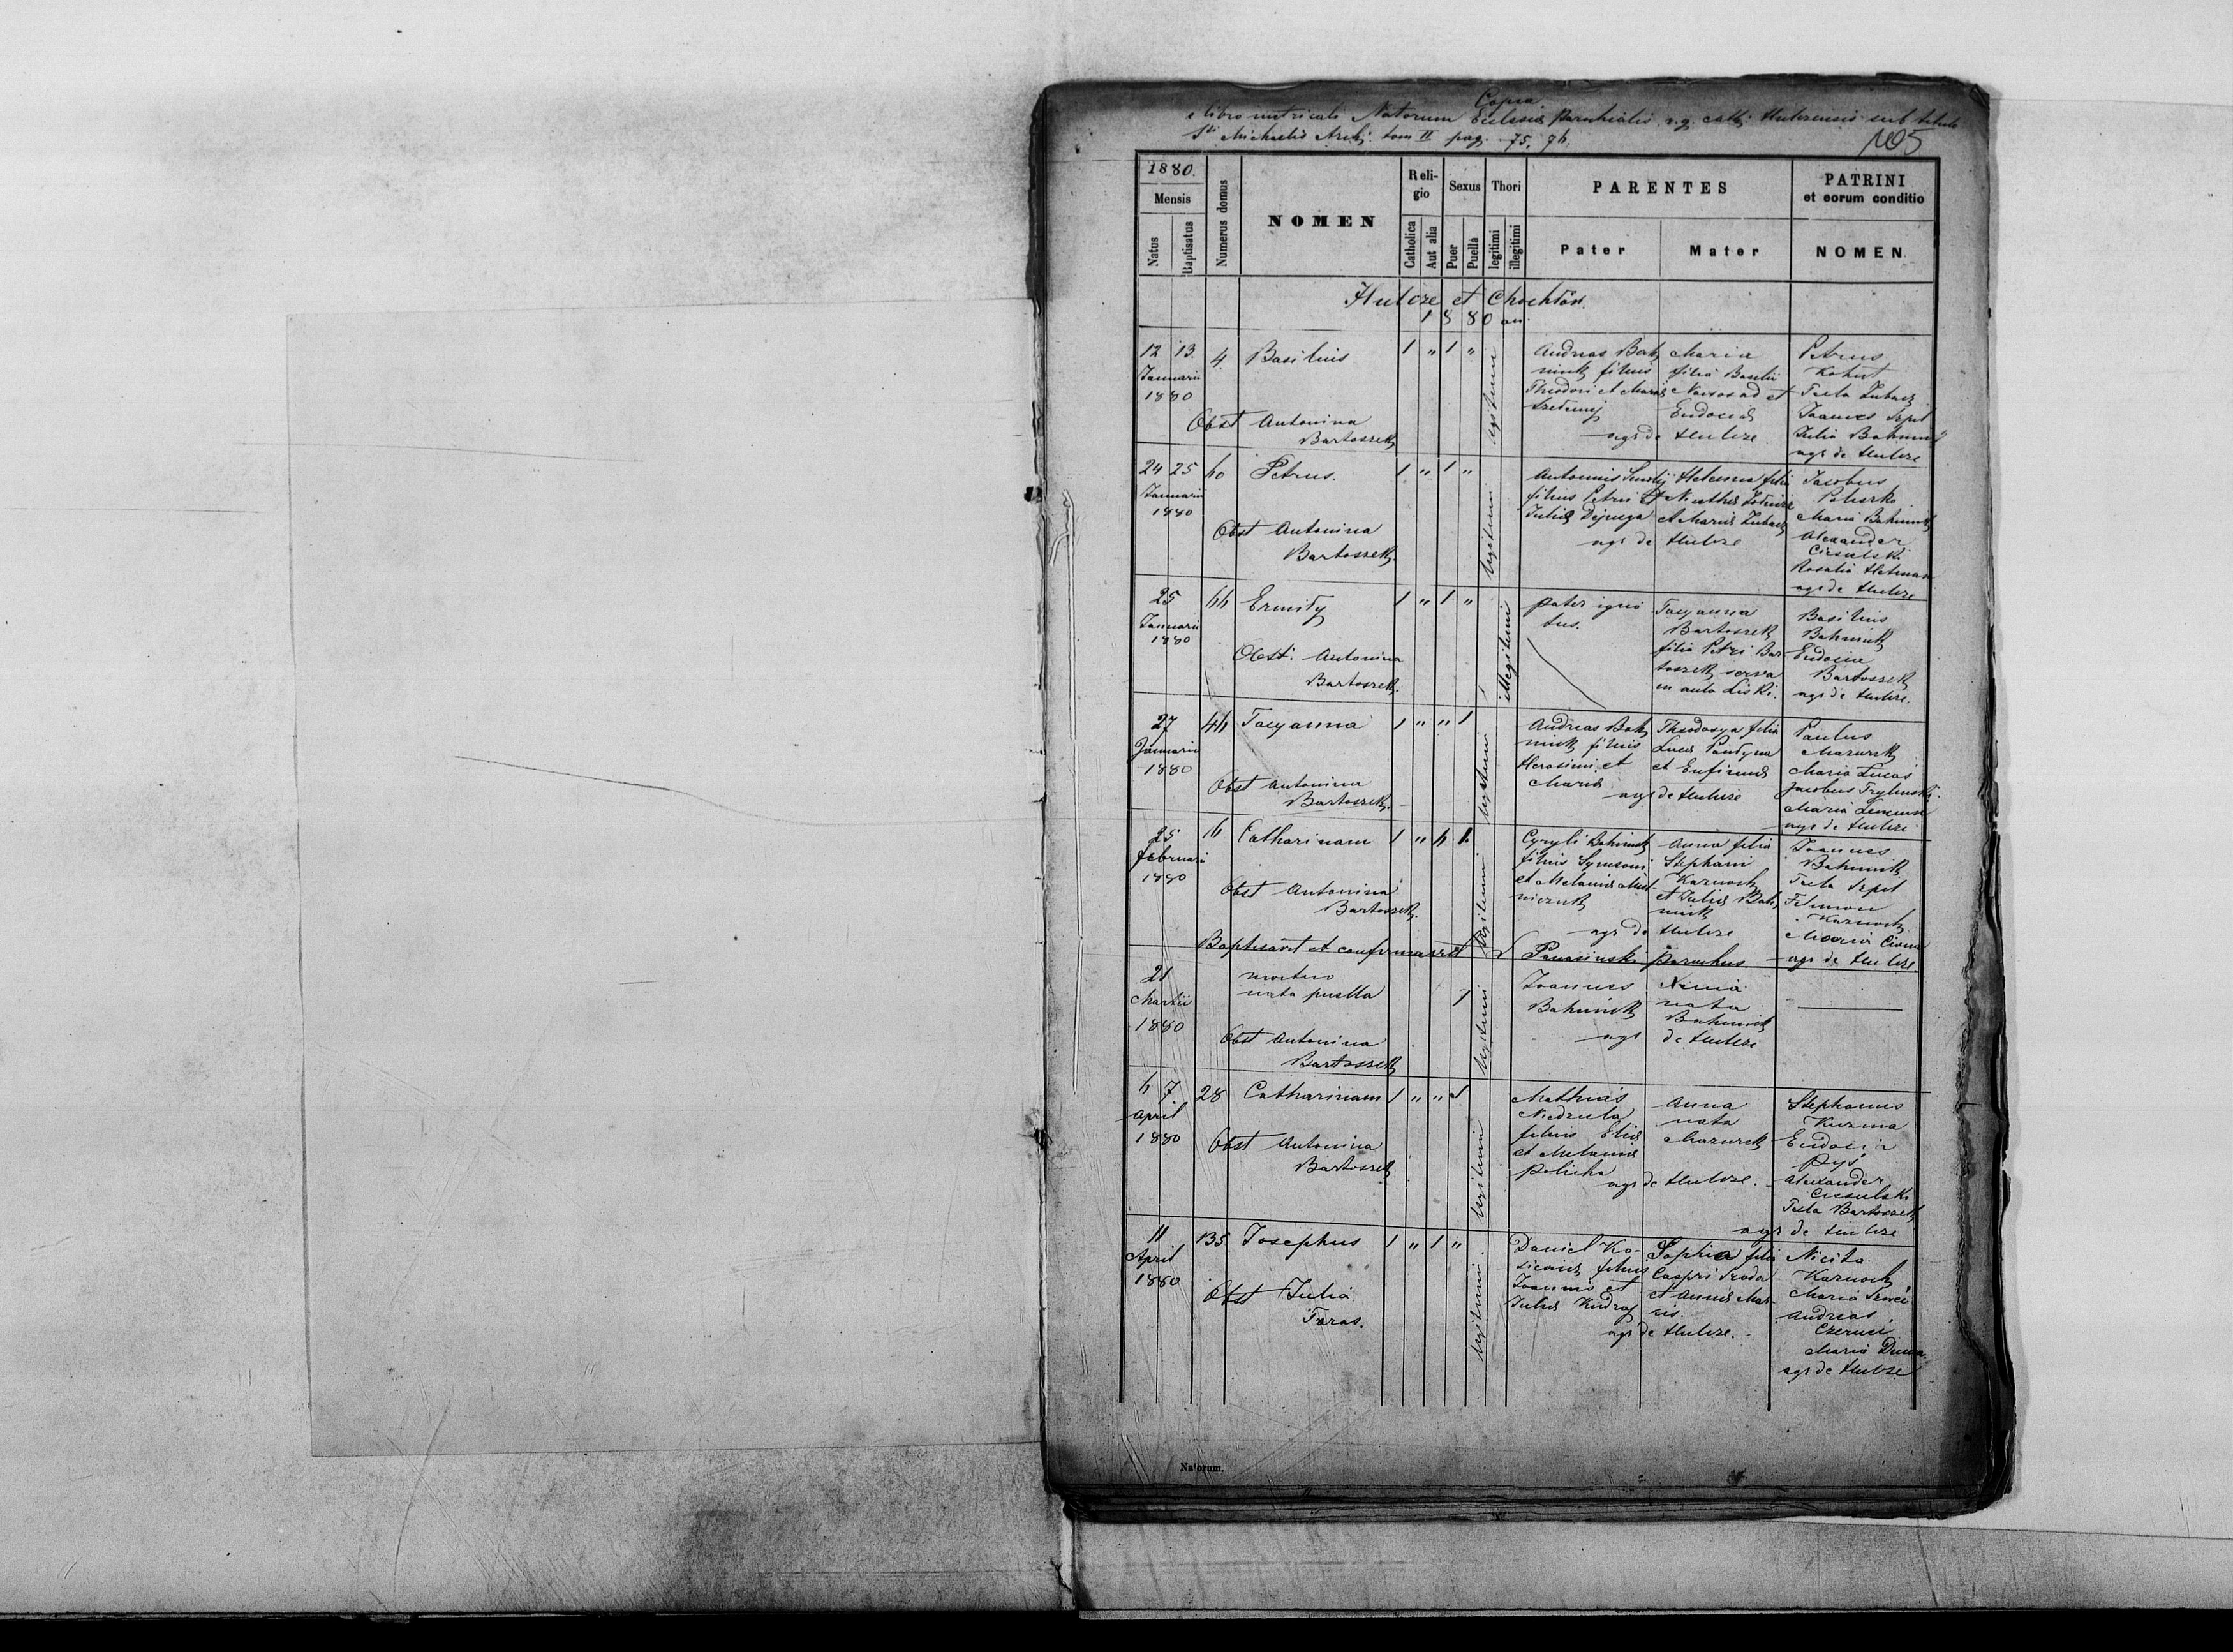 Copia
e libro metricali Natorum Eclesiae Parochialis r. g. cath. Hulczensis sub titulo
Sti Michaelis Arch. tom II pag. 75, 76.
105
1880.
Mensis
Natus
Baptisatus
Numerus domus
NOMEN
Religio
Catholica
Aut alia
Sexus
Puer
Puella
Thori
legitimi
illegitimi
PARENTES
Pater
Mater
PATRINI
et eorum conditio
NOMEN
Hulcze et Chochłów.
1880 an.
12 13
Januarii
1880
4.
Basilius
Obst Antonina
Bartoszek
1 " 1 "
legitimi
Andreas Bah
niuk filius
Theodori et Mariae
Maria
filia Basilii
et
Eudociae
agr de Hulcze
Petrus
Kohut
Tecla Zubacz
Joannes Szpyt
Julia Bahniuk
agr de Hulcze
24 25
Januarii
1880
60
Petrus.
Obst Antonina
Bartoszek.
1 " 1 "
legitimi
Antonius
filius Petri et
Juliae Dejnega
Helenna filia
et Mariae Zubacz
agr de Hulcze
Jacobus
Poliszko
Maria Bahniuk
Alexander
Ciesielski
Rosalia Hetman
agr de Hulcze
25
Januarii
1880
66
Obst. Antonina
Bartoszek.
1 " 1 "
illegitimi
pater igno
tus.
Tacyanna
Bartoszek
filia Petri Bar
toszek serva
in aula Liski.
Basilius
Bahniuk
Eudocia
Bartoszek
agr de Hulcze.
27
Januarii
1880
46
Tacyanna
Obst Antonina
Bartoszek.
1 " " 1
legitimi
Andreas Bah
niuk filius
Herasimi et
Mariae
Theodosya filia
Lucae
et
agr de Hulcze
Paulus
Mazurek
Maria Lucas
Jacobus
Maria
agr de Hulcze
25
februarii
1880
16
Catharinam
Obst Antonina
Bartoszek.
1 "
legitimi
Cyryli Bahniuk
filius Symeoni
et Melaniae
Anna filia
Stephani
Karnoch
et Juliae Bah
niuk
agr de Hulcze
Joannes
Bahniuk
Tecla Szpyt
Filimon
Karnoch
Maria
agr de Hulcze.
Baptisavit et confirmavit
Panasinski parochus
21
Martii
1880
mortuo
nata puella
Obst Antonina
Bartoszek
1
legitimi
Joannes
Bahniuk
nata
Bahniuk
agr de Hulcze
6 7
April
1880
28
Catharinam
Obst Antonina
Bartoszek
1 " " 1
legitimi
Mathias
Niedzula
filius Eliae
et Melaniae
Policha
Anna
nata
Mazurek
agr de Hulcze.
Stephanus
Kuzma
Eudocia
Pyś
Alexander
Ciesielski
Tecla Bartoszek
agr de Hulcze
11
April
1880
135
Josephus
Obst Julia
Taras.
1 " 1 "
legitimi
Daniel Ko-
filius
Joannis et
Juliae
Sophia filia
et Annae
agr de Hulcze.
Nicita
Karnoch
Maria
Andreas
Czerniei
Maria
agr de Hulcze
Natorum.